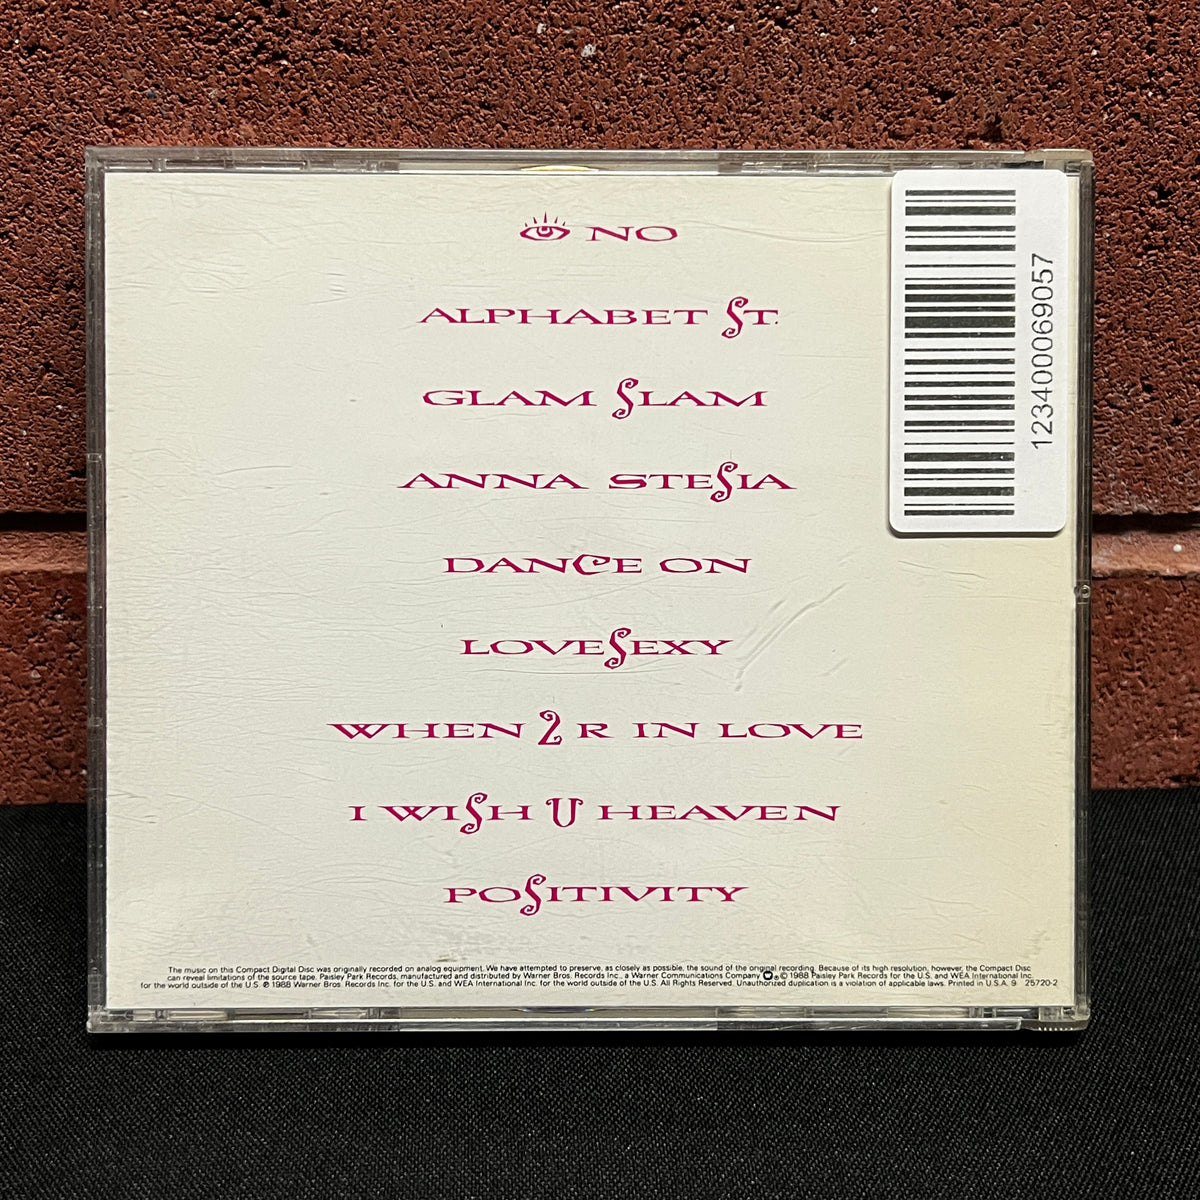 NO
ALPHABET ST.
GLAM SLAM
ANNA STESIA
DANCE ON
LOVESEXY
WHEN 2 R IN LOVE
I WISH U HEAVEN
POSITIVITY
12340006905​7
The music on this Compact Digital Disc was originally recorded on analog equipment. We have attempted to preserve, as closely as possible, the sound of the original recording. Because of its high resolution, however, the Compact Disc
can reveal limitations of the source tape. Paisley Park Records, manufactured and distributed by Warner Bros. Records Inc., a Warner Communications Company ® © 1988 Paisley Park Records for the U.S. and WEA International Inc.
for the world outside of the U.S. ℗ 1988 Warner Bros. Records Inc. for the U.S. and WEA International Inc. for the world outside of the U.S. All Rights Reserved. Unauthorized duplication is a violation of applicable laws. Printed in U.S.A. 9 25720-2